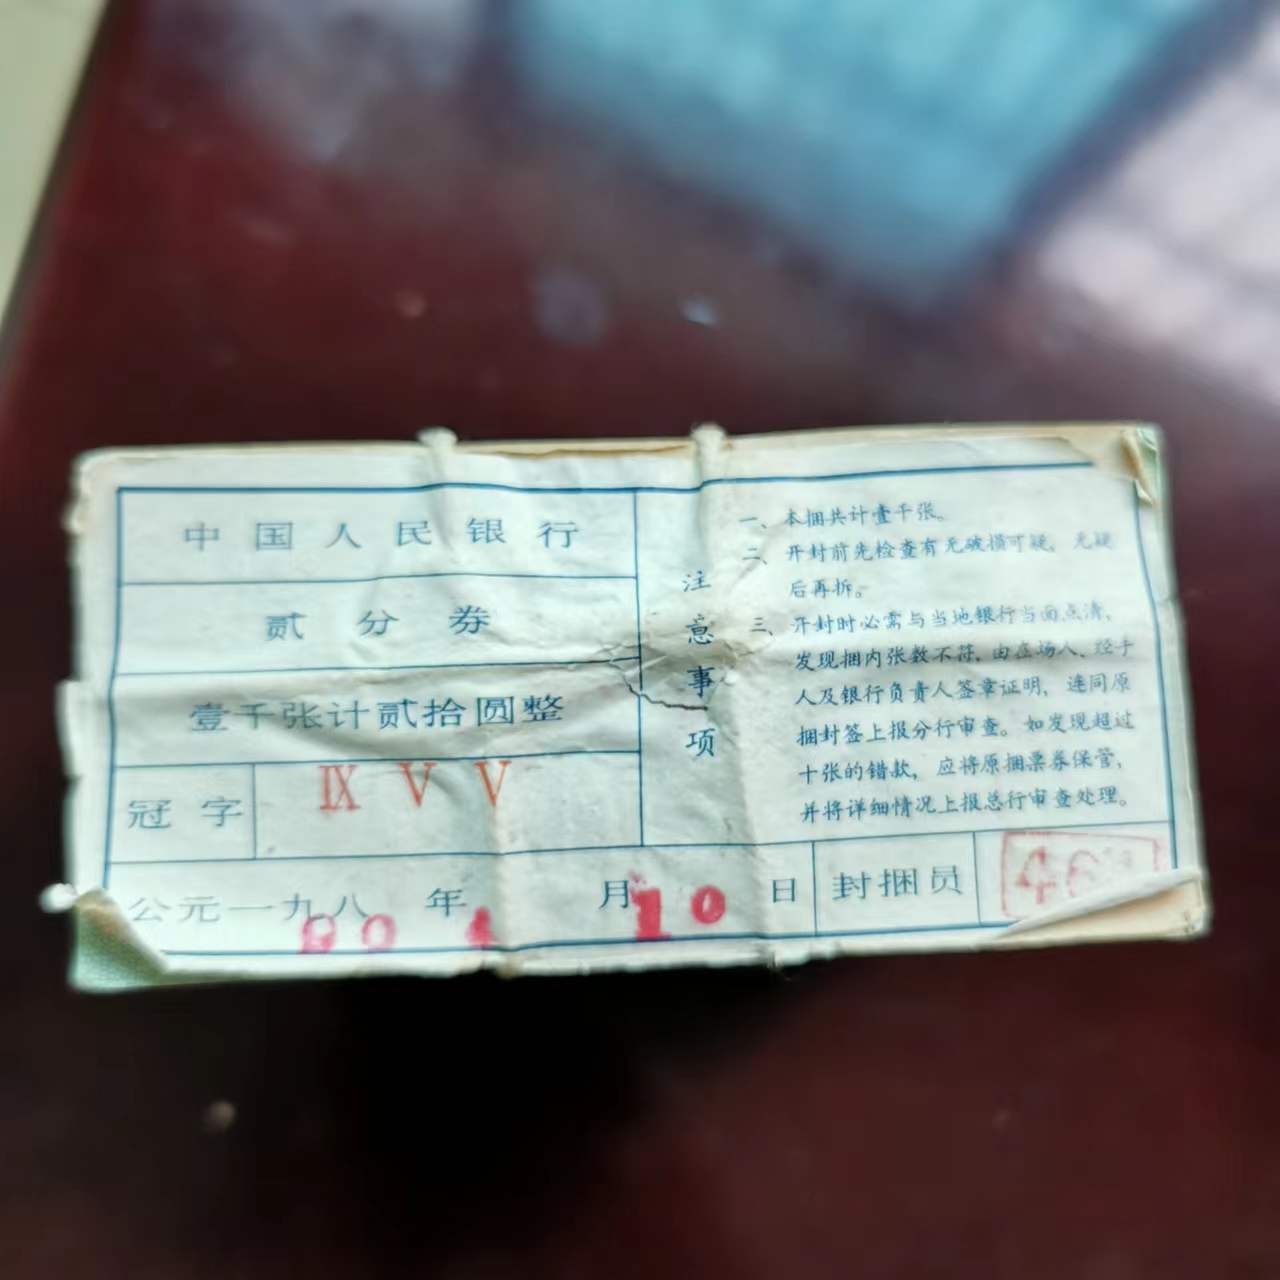 中国人民银行
贰分券
壹千张计贰拾圆整
冠字 Ⅸ Ⅴ Ⅴ
注意事项
一、本捆共计壹千张。
二、开封前先检查有无破损可疑，无疑
后再拆。
三、开封时必需与当地银行当面点清，
发现捆内张数不符，由在场人、经手
人及银行负责人签章证明，连同原
捆封签上报分行审查。如发现超过
十张的错款，应将原捆票券保管，
并将详细情况上报总行审查处理。
公元一九八 年 月 日
10
封捆员
46